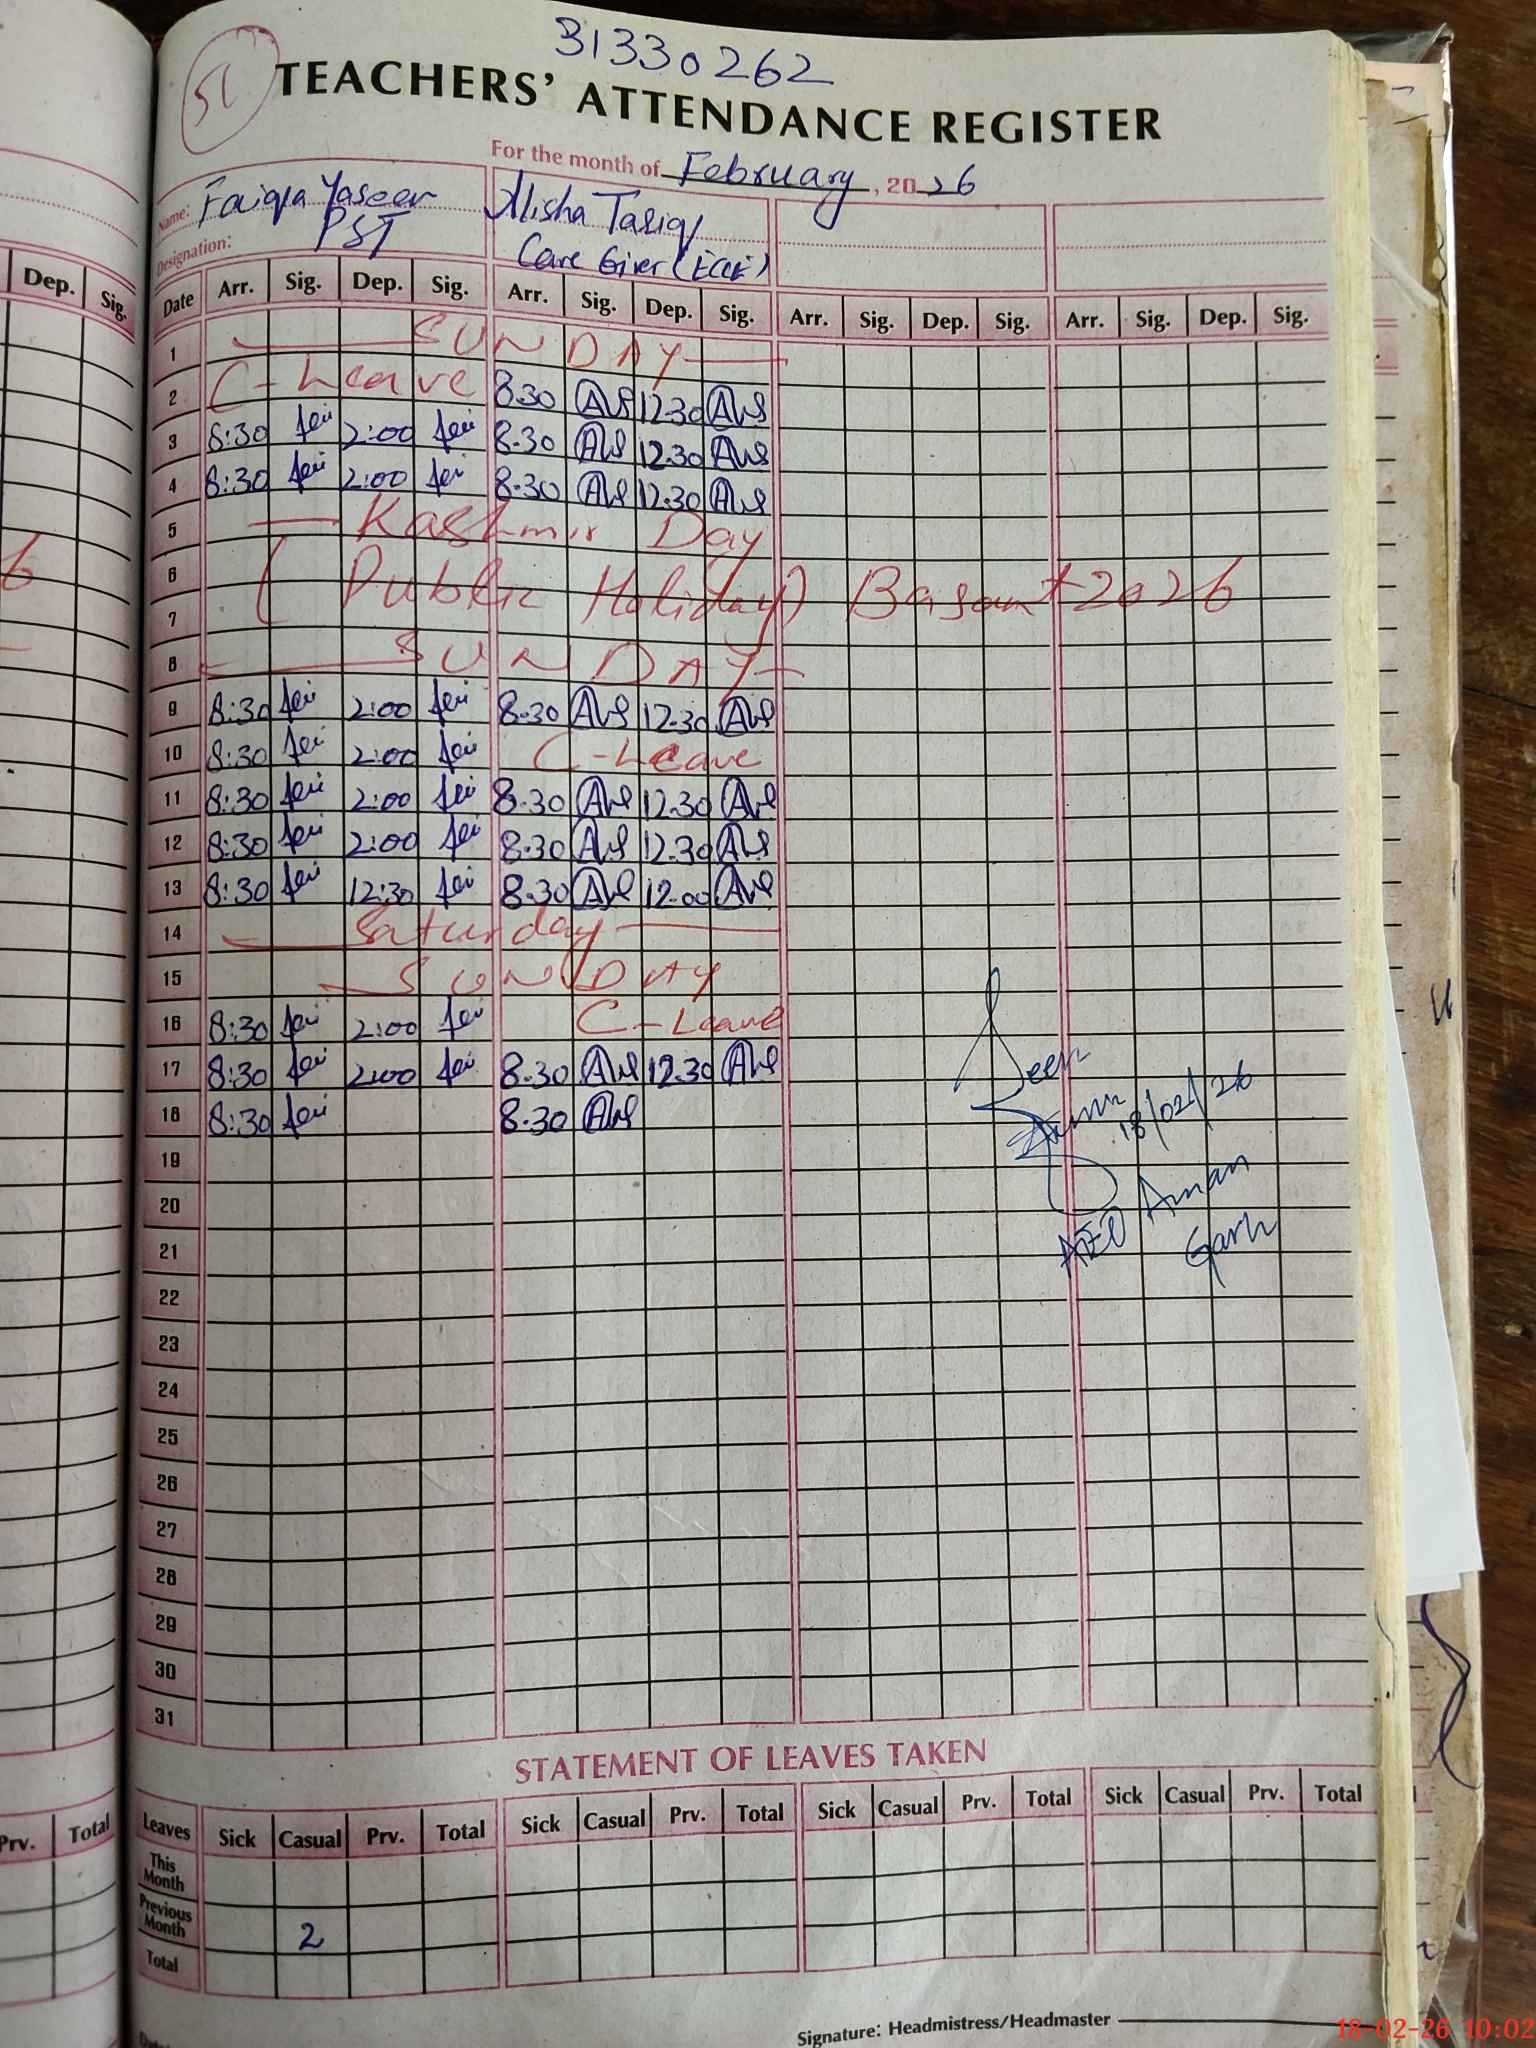 31330262
51
TEACHERS' ATTENDANCE REGISTER
For the month of February, 2026
Name: Faiqa Yaseen Alisha Tariq
Designation: PST Care Giver (ECCE)
Dep. Sig.
Date Arr. Sig. Dep. Sig. Arr. Sig. Dep. Sig. Arr. Sig. Dep. Sig. Arr. Sig. Dep. Sig.
1 SUNDAY
2 C-Leave 8.30 12.30
3 8:30 2:00 8.30 12.30
4 8:30 2:00 8.30 12.30
5 Kashmir Day
6 (Public Holiday) Basant 2026
7
8 SUNDAY
9 8:30 2:00 8.30 12.30
10 8:30 2:00 C-Leave
11 8:30 2:00 8.30 12.30
12 8:30 2:00 8.30 12.30
13 8:30 12:30 8.30 12.00
14 Saturday
15 SUNDAY
16 8:30 2:00 C-Leave
17 8:30 2:00 8.30 12.30
18 8:30 8.30
Seen
18/02/26
AEO Aman
Garh
19
20
21
22
23
24
25
26
27
28
29
30
31
STATEMENT OF LEAVES TAKEN
Prv. Total
Leaves Sick Casual Prv. Total Sick Casual Prv. Total Sick Casual Prv. Total Sick Casual Prv. Total
This Month
Previous Month 2
Total
Signature: Headmistress/Headmaster
18-02-26 10:02